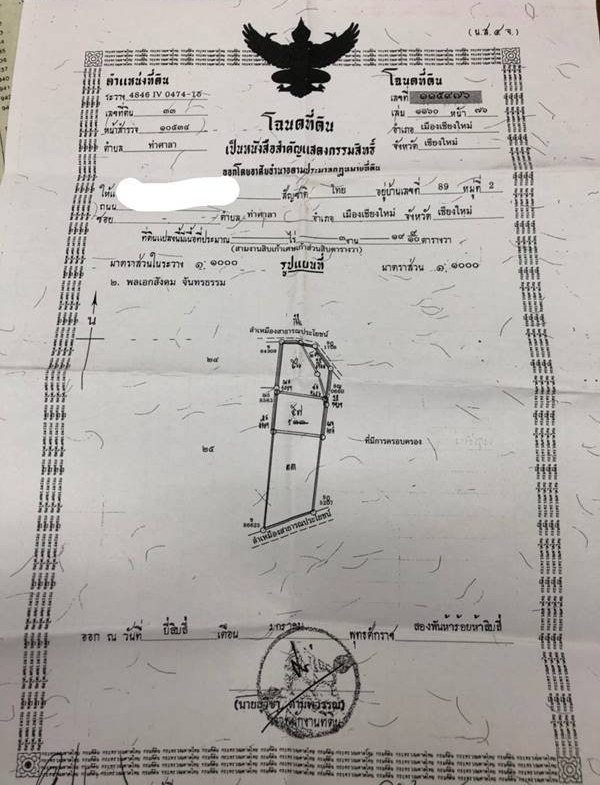 (น.ส.๔ จ.)
ตำแหน่งที่ดิน
ระวาง 4846 IV 0474-15
เลขที่ดิน ๓๓
หน้าสำรวจ ๑๐๕๓๔
ตำบล ท่าศาลา
โฉนดที่ดิน
เลขที่ ๑๑๕๙๗๖
เล่ม ๑๑๖๐ หน้า ๗๖
อำเภอ เมืองเชียงใหม่
จังหวัด เชียงใหม่
โฉนดที่ดิน
เป็นหนังสือสำคัญแสดงกรรมสิทธิ์
ออกโดยอาศัยอำนาจตามประมวลกฎหมายที่ดิน
สัญชาติ ไทย อยู่บ้านเลขที่ 89 หมู่ที่ 2
ถนน
ซอย - ตำบล ท่าศาลา อำเภอ เมืองเชียงใหม่ จังหวัด เชียงใหม่
ที่ดินแปลงนี้มีเนื้อที่ประมาณ - ไร่ ๓ งาน ๑๙ ตารางวา
(สามงานสิบเก้าเศษเก้าส่วนสิบตารางวา)
มาตราส่วนในระวาง ๑:๑๐๐๐ รูปแผนที่ มาตราส่วน ๑:๑๐๐๐
๒. พลเอกสังคม จันทรธรรม
น
ลำเหมืองสาธารณประโยชน์
๒๔
๒๕
ที่มีการครอบครอง
ลำเหมืองสาธารณประโยชน์
ออก ณ วันที่ ยี่สิบสี่ เดือน มกราคม พุทธศักราช สองพันห้าร้อยห้าสิบสี่